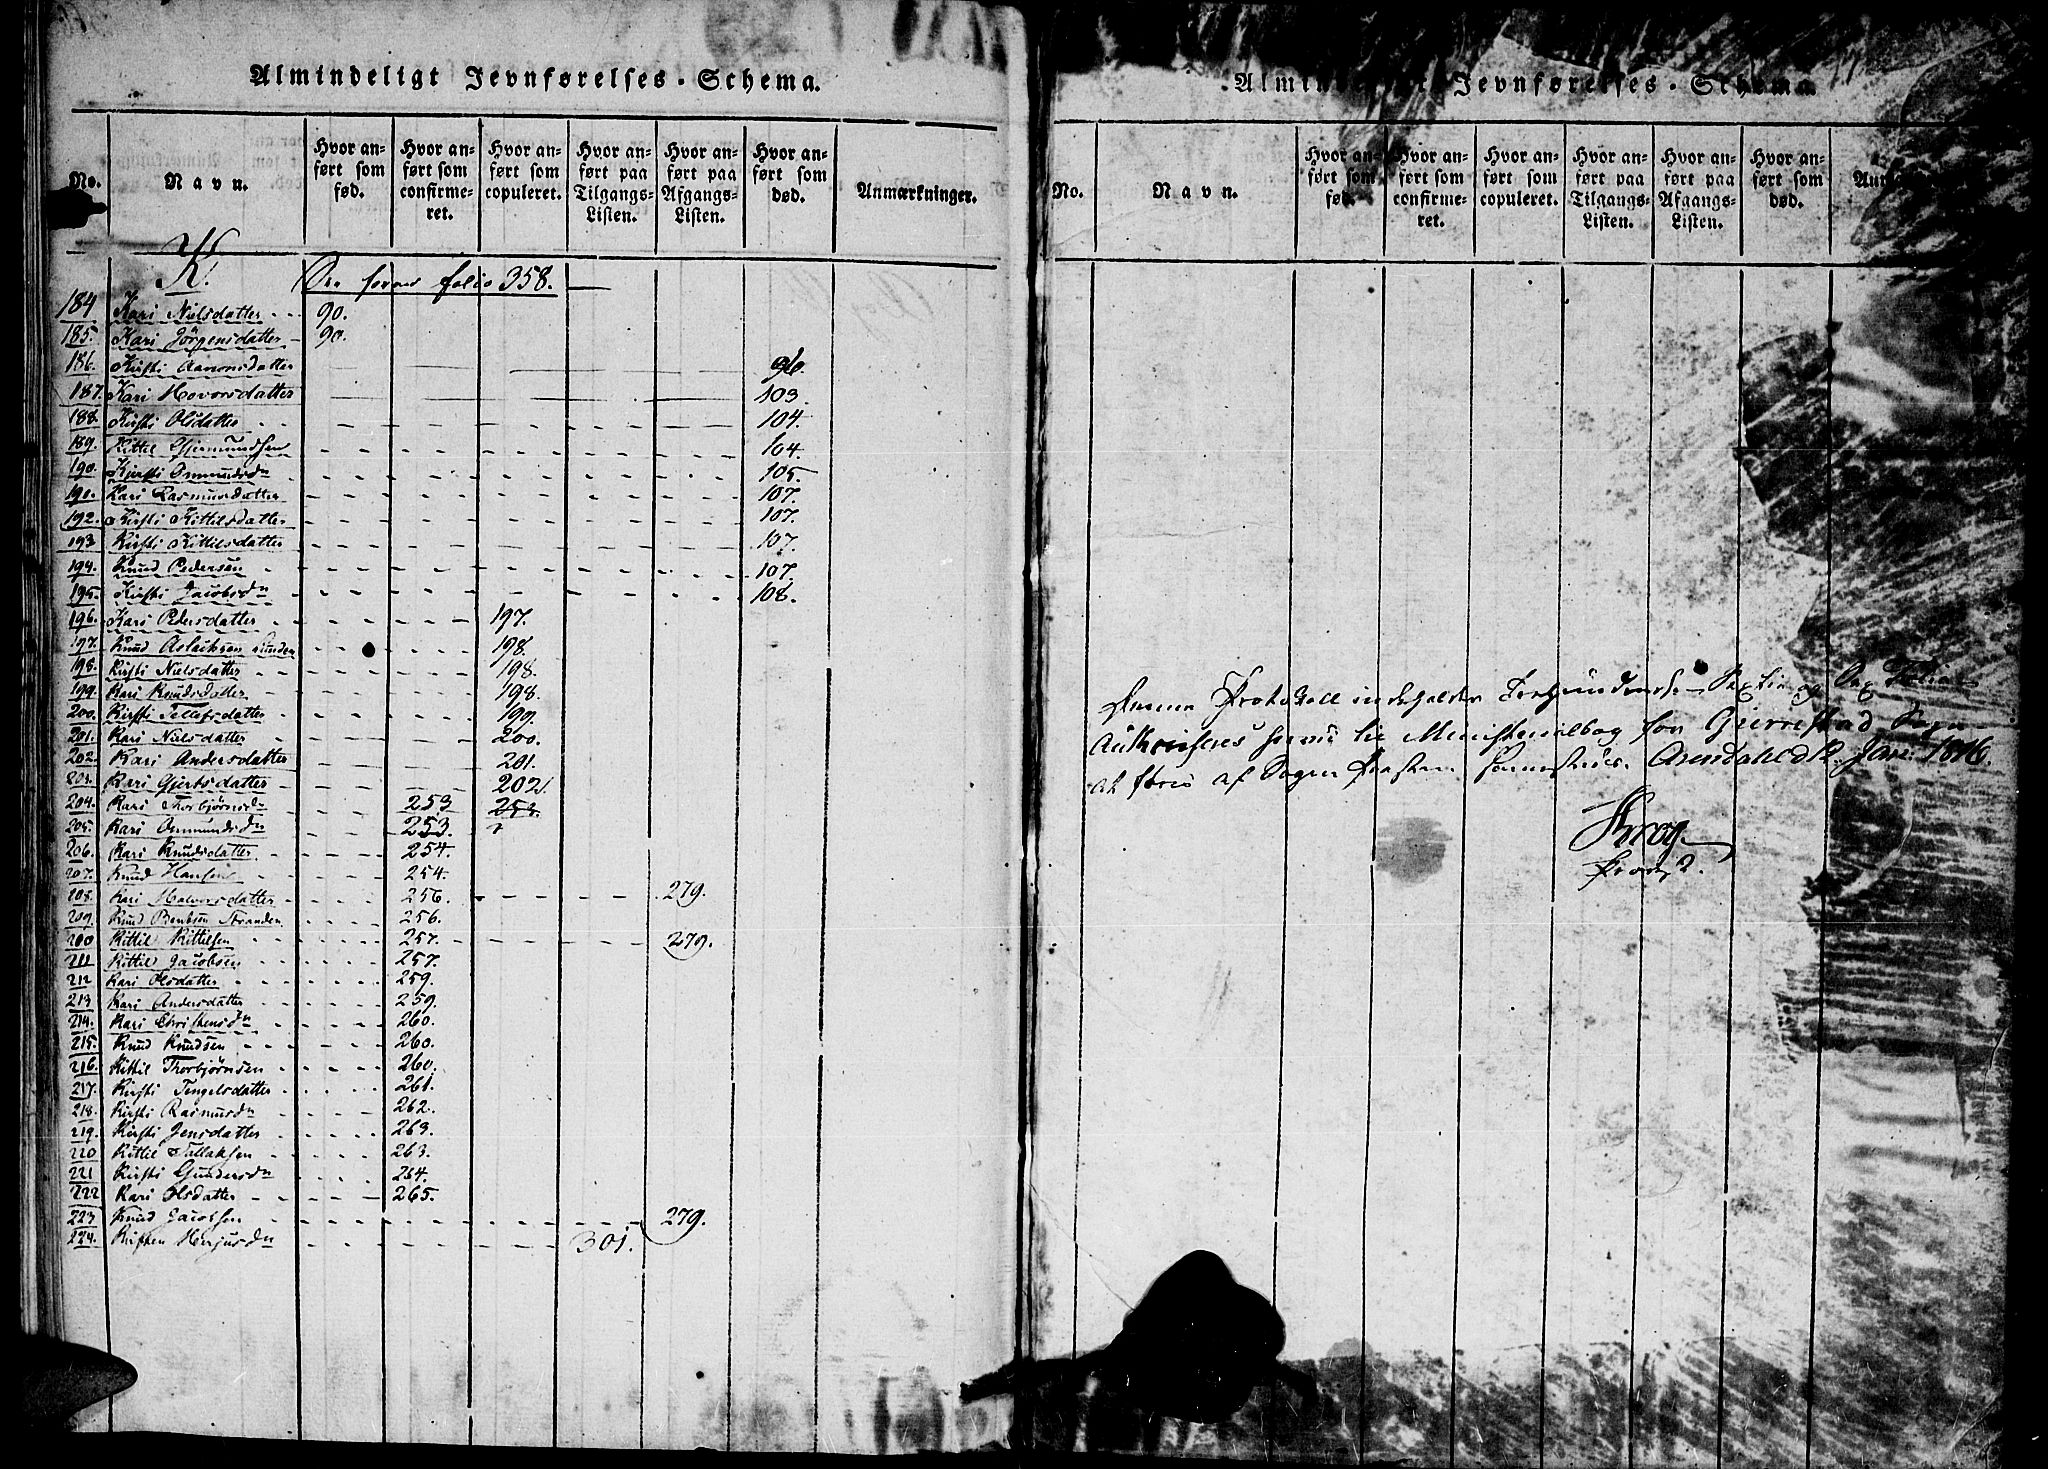 Almindeligt Jevnførelses-Schema.
No. Navn. Hvor anført som fød. Hvor anført som confirmeret. Hvor anført som copuleret. Hvor anført paa Tilgangs-Listen. Hvor anført paa Afgangs-Listen. Hvor anført som død. Anmærkninger.
K. folio 358.
184 Kari Nielsdatter 90.
185. Kari Jörgensdatter 90.
186. Kirsti Aanonsdatter 96.
187. Kari Hovorsdatter 103.
188. Kirsti Olsdatter 104.
189. Kittil Gjermundsen 104.
190. Kirsti Osmundsdn 105.
190. Kari Rasmusdatter 107.
192. Kirsti Kittilsdatter 107.
193 Kirsti Kittilsdatter 107.
194. Knud Pedersen 107.
195. Kirsti Jacobsdn 108.
196. Kari Pedersdatter 197.
197. Knud Aslachsen 198.
198. Kirsti Nielsdatter 198.
199. Kari Knudsdatter 198.
200. Kirsti Tellefsdatter 199.
201. Kari Nielsdatter 200.
202. Kari Andersdatter 201.
203. Kari Gjertsdatter 202.
204. Kari Thorbjørnsdn 253 253.
205. Kari Osmundsdn 253.
206. Kari Knudsdatter 254.
207. Knud Hansen 254.
208. Kari Halvorsdatter 256. 279.
209. Knud Bentsen Stranden 256.
200 Kittil Kittilsen 257. 279.
211 Kittil Jacobsen 257.
212 Kari Olsdatter 259.
213 Kari Andersdatter 259.
214. Kari Christensdn 260.
215. Knud Knudsen 260.
216. Kittil Thorbjørnsen 260.
217. Kirsti Tengelsdatter 261.
218. Kirsti Rasmusdn 262.
219. Kirsti Jensdatter 263.
220 Kittil Tallaksen 263.
221 Kirsti Gundersdn 264.
222 Kari Olsdatter 265.
223 Knud Jacobsen 279.
224. Kirsten Herjusdn 301.
Almindeligt Jevnførelses-Schema.
No. Navn. Hvor anført som fød. Hvor anført som confirmeret. Hvor anført som copuleret. Hvor anført paa Tilgangs-Listen. Hvor anført paa Afgangs-Listen. Hvor anført som død.
Denne Protokoll indeholder Trehundrede Sextiog Sex Folia
Authoriseres herved til Ministerialbog for Gjerrestad Sogn
at føres af Sogne Præsten sammesteds. Arendahl d 12 Jan: 1816.
Krog
Provst.